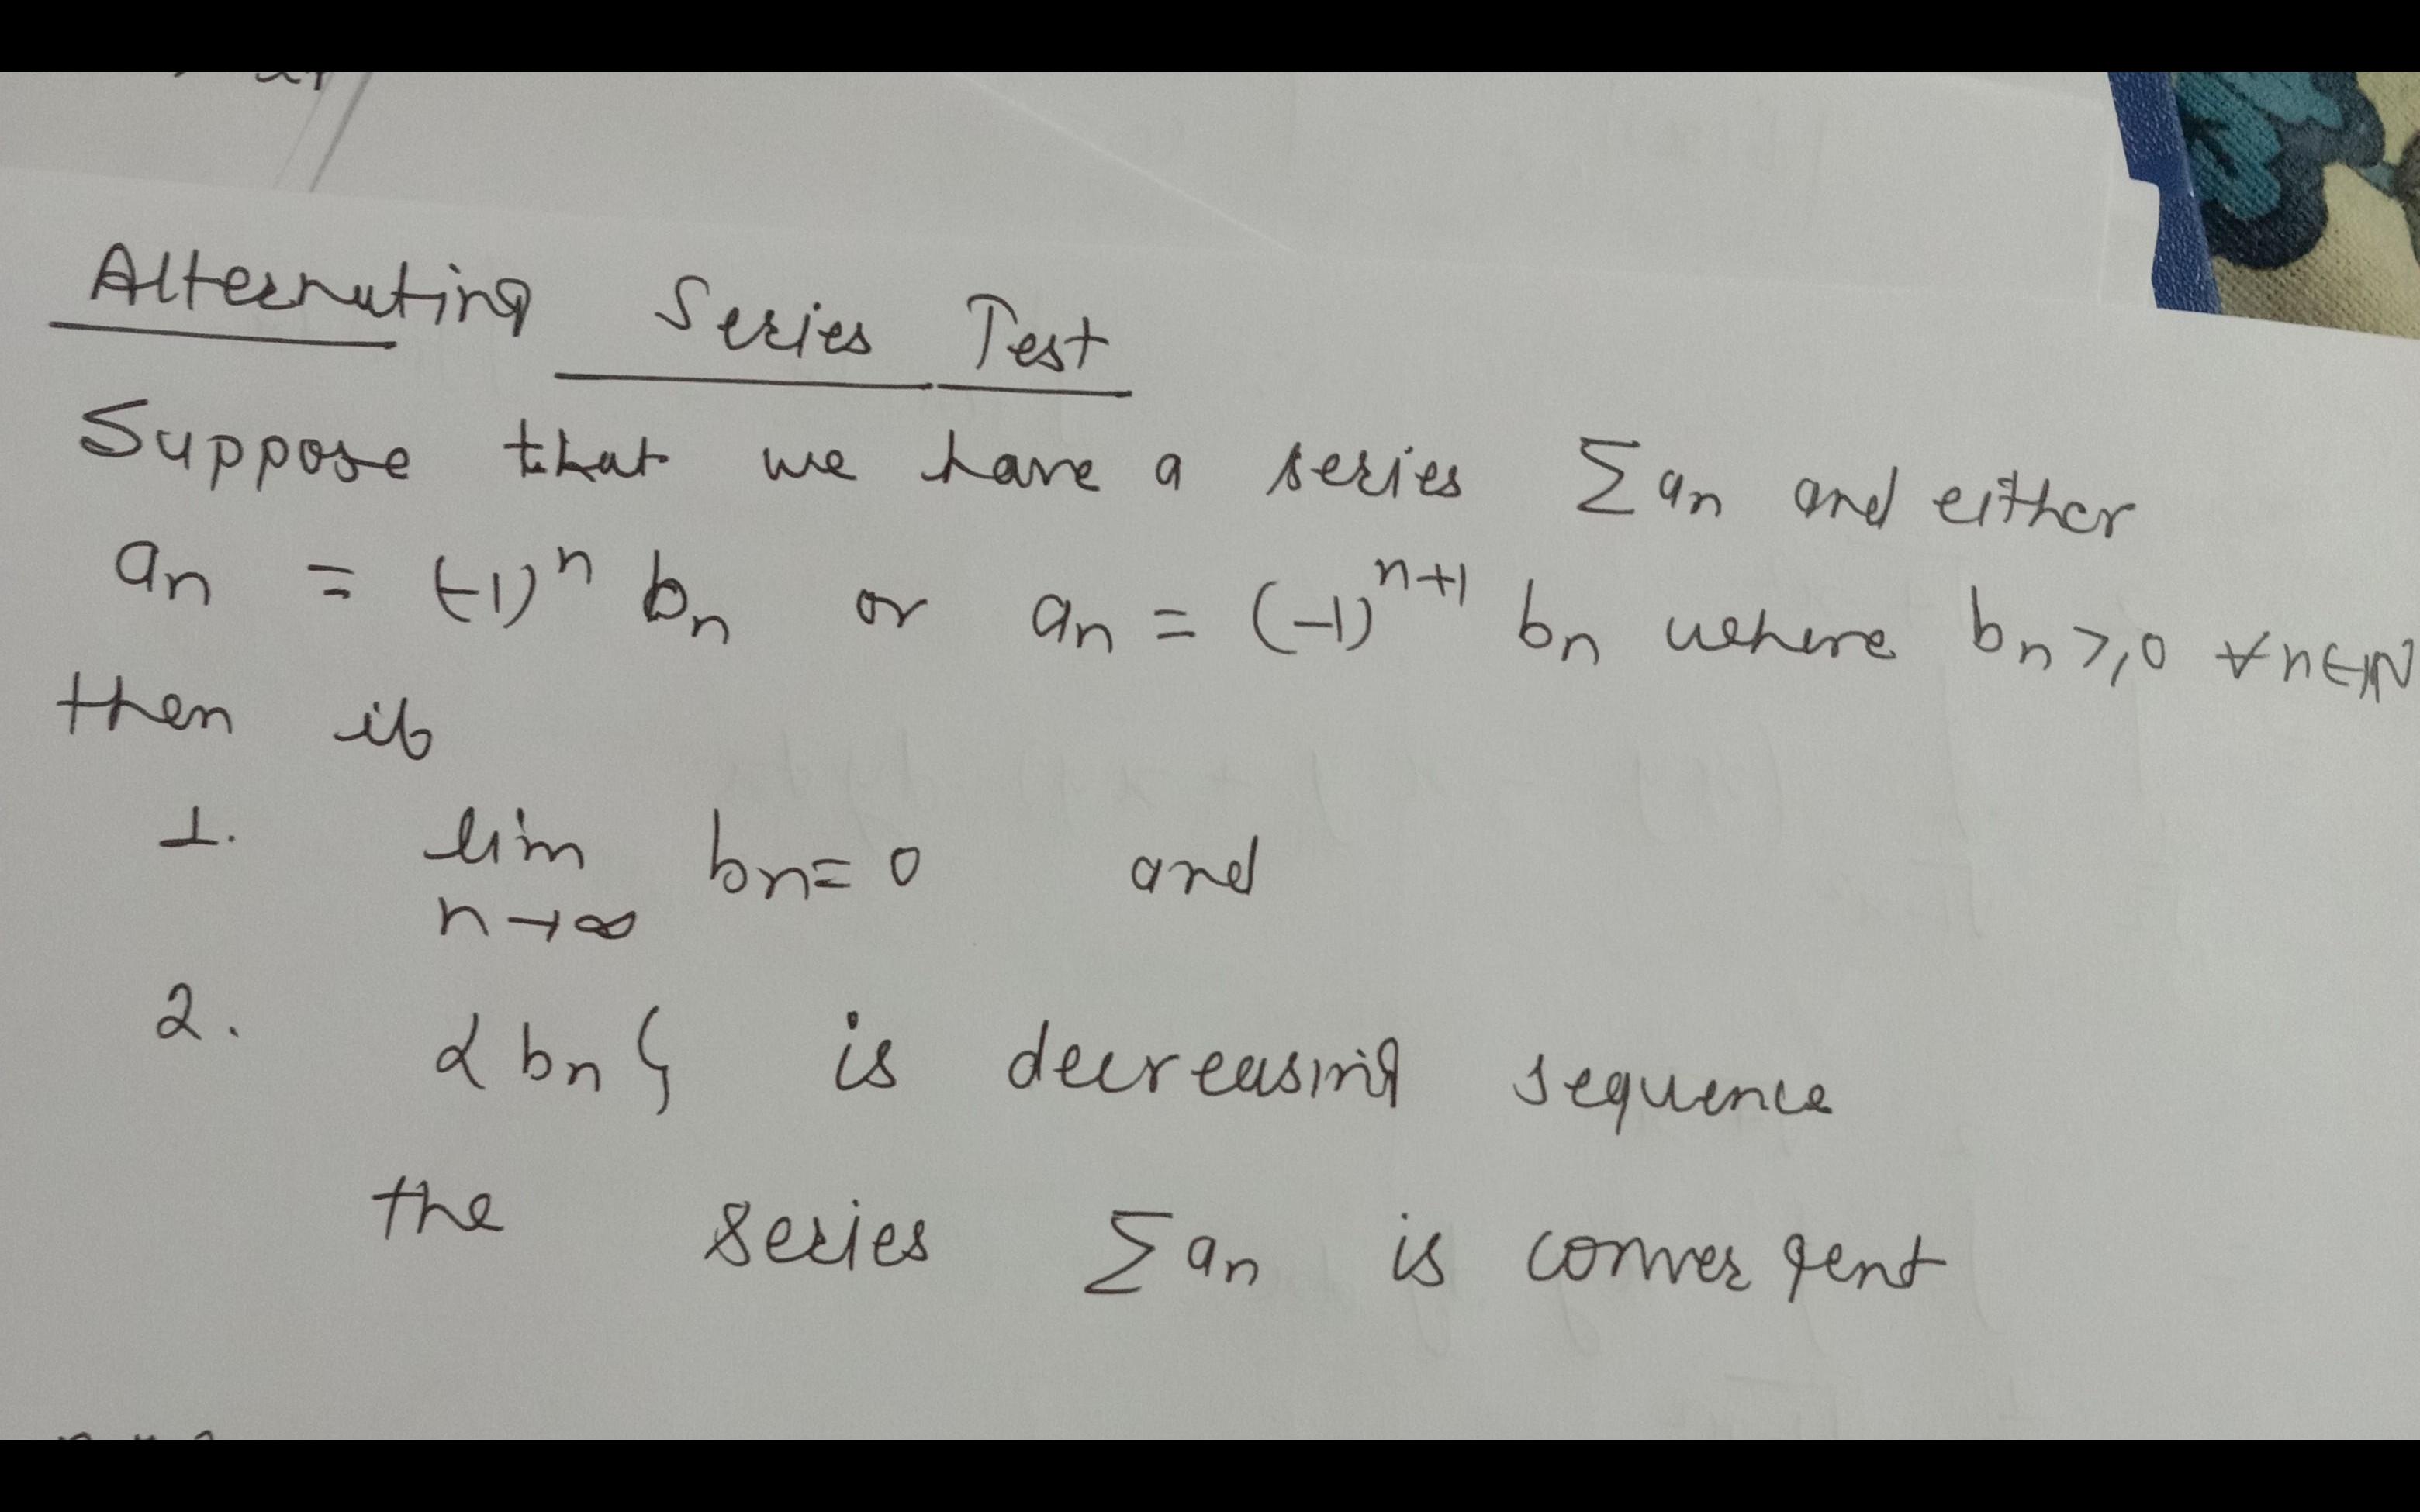 Alternating Series Test
Suppose that we have a series Σ an and either
an = (-1)^n bn or an = (-1)^n+1 bn where bn ≥ 0 ∀ n ∈ N
then if
1. lim bn = 0 and
n→∞
2. {bn} is decreasing sequence
the series Σ an is convergent